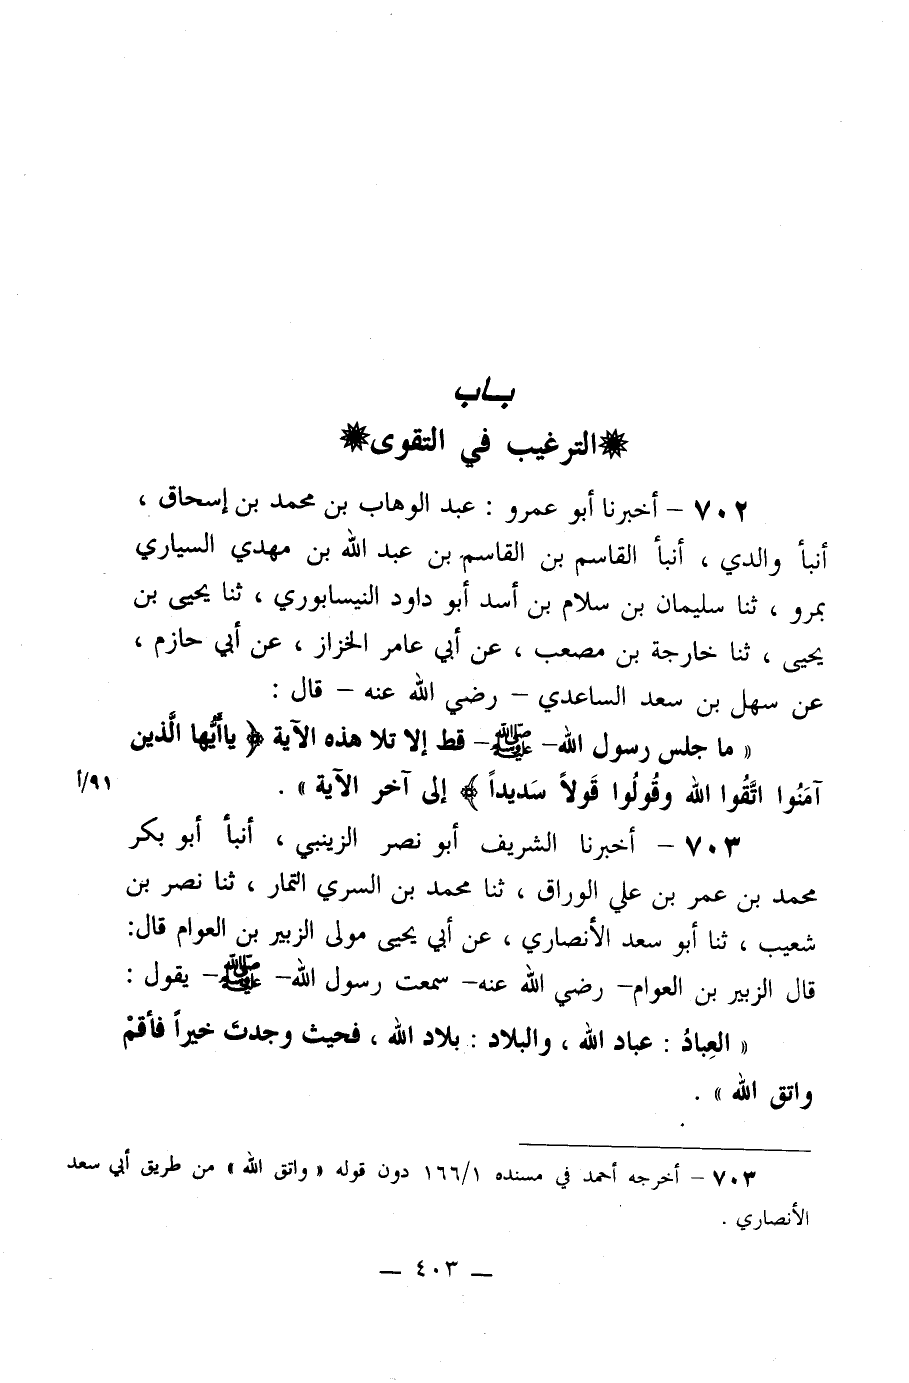 بـاب
الترغيب في التقوى
٧٠٢ – أخبرنا أبو عمرو : عبد الوهاب بن محمد بن إسحاق ،
أنبأ والدي ، أنبأ القاسم بن القاسم بن عبد الله بن مهدي السياري
بمرو ، ثنا سليمان بن سلام بن أسد أبو داود النيسابوري ، ثنا يحيى بن
يحيى ، ثنا خارجة بن مصعب ، عن أبي عامر الخزاز ، عن أبي حازم ،
عن سهل بن سعد الساعدي – رضي الله عنه – قال :
« ما جلس رسول الله– ﷺ – قط إلا تلا هذه الآية ﴿ ياأَيُّها الَّذين
آمَنُوا اتَّقُوا الله وقُولُوا قَولاً سَديداً ﴾ إلى آخر الآية » .
٩١/أ
٧٠٣ – أخبرنا الشريف أبو نصر الزينبي ، أنبأ أبو بكر
محمد بن عمر بن علي الوراق ، ثنا محمد بن السري التمار ، ثنا نصر بن
شعيب ، ثنا أبو سعد الأنصاري ، عن أبي يحيى مولى الزبير بن العوام قال:
قال الزبير بن العوام– رضي الله عنه– سمعت رسول الله– ﷺ – يقول :
« العِبادُ : عباد الله ، والبلاد : بلاد الله ، فحيث وجدتَ خيراً فأقمْ
واتق الله » .
٧٠٣ – أخرجه أحمد في مسنده ١٦٦/١ دون قوله « واتق الله » من طريق أبي سعد
الأنصاري .
— ٤٠٣ —